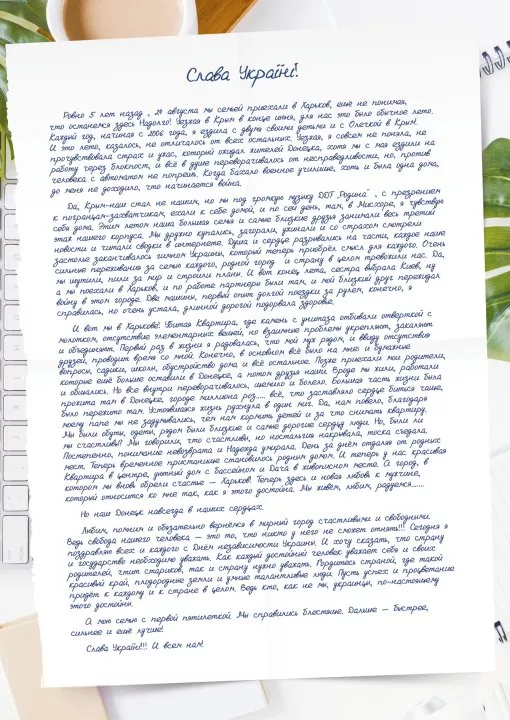 Слава Україні!
Ровно 5 лет назад, 24 августа мы семьей приехали в Харьков, ещё не понимая,
что останемся здесь надолго! Уезжая в Крым в конце июня, для нас это было обычное лето.
Каждый год, начиная с 2006 года, я ездила с двумя своими детьми и с Олечкой в Крым.
И это лето, казалось, не отличалось от всех остальных. Уезжая, я совсем не поняла, не
прочувствовала страх и ужас, который ожидал жителей Донецка, хотя мы с мая ездили на
работу через блокпост, и всё в душе переворачивалось от несправедливости, но, против
человека с автоматом не попрешь. Когда бахало военное училище, хоть и была одна дома,
до меня не доходило, что начинается война.
Да, Крым-наш стал не нашим, но мы под громкую музыку DDT „Родина", с презрением
к погранцам-захватчикам, ехали к себе домой, и по сей день, там, в Мисхоре, я чувствую
себя дома. Этим летом наша большая семья и самые близкие друзья занимали весь третий
этаж нашего корпуса. Мы дружно купались, загорали, ужинали и со страхом смотрели
новости и читали сводки в интернете. Душа и сердце разрывались на части, каждое наше
застолье заканчивалось гимном Украины, который теперь приобрёл смысл для каждого. Очень
сильные переживания за семью каждого, родной город и страну в целом тревожили нас. Да,
мы шутили, пили за мир и строили планы. И вот конец лета, сестра выбрала Киев, ну
а мы поехали в Харьков, и по работе партнеры были там, и мой близкий друг переждал
войну в этом городе. Две машины, первый опыт долгой поездки за рулём, конечно, я
справилась, но очень устала, длинной дорогой подорвала здоровье.
И вот мы в Харькове! Убитая Квартира, где камень с унитаза отбивали отверткой с
молотком, отсутствие элементарных вещей, но взаимные проблемы укрепляют, закаляют
и объединяют. Первый раз в жизни я радовалась, что мой муж рядом, и ввиду отсутствию
друзей, проводит время со мной. Конечно, в основном всё было на мне: и бумажные
вопросы, садики, школы, обустройство дома и всё остальное. Позже приехали мои родители,
которые ещё больше оставили в Донецке, а потом друзья наши. Вроде мы жили, работали
и общались. Но все внутри переворачивалось, щемило и болело. Большая часть жизни была
прожита там в Донецке, городе миллиона роз..... всё, что заставляло сердце биться чаще,
было пережито там. Устоявшаяся жизнь рухнула в один миг. Да, нам повело, благодаря
моему папе мы не задумывались, чем нам кормить детей и за что снимать квартиру.
Мы были обуты, одеты, рядом были близкие и самые дорогие сердцу люди. Но, были ли
мы счастливы? Мы говорили, что счастливы, но ностальгия накрывала, тоска съедала.
Постепенно, понимание невозврата и Надежда умирала. День за днём отдалял от родных
мест. Теперь временное пристанище становилось родным домом. И теперь у нас красивая
Квартира в центре, уютный дом с бассейном и Дача в живописном месте. А город, в
котором мы вновь обрели счастье – Харьков. Теперь здесь и новая любовь к мужчине,
который относится ко мне так, как я этого достойна. Мы живем, любим, радуемся.......
Но наш Донецк навсегда в наших сердцах.
Любим, помним и обязательно вернёмся в мирный город счастливыми и свободными.
Ведь свобода нашего человека – это то, что никто у него не сможет отнять!!! Сегодня я
поздравляю всех и каждого с Днём независимости Украины. И хочу сказать, что страну
и государство необходимо уважать. Как каждый достойный человек уважает себя и своих
родителей, чтит стариков, так и страну нужно уважать. Гордитесь страной, где такой
красивый край, плодородные земли и умные талантливые люди. Пусть успех и процветание
придёт к каждому и к стране в целом. Ведь кто, как не мы, украинцы, по-настоящему
этого достойны.
А мою семью с первой пятилеткой. Мы справились блестяще. Дальше – быстрее,
сильнее и ещё лучше!
Слава Україні!!! И всем нам!